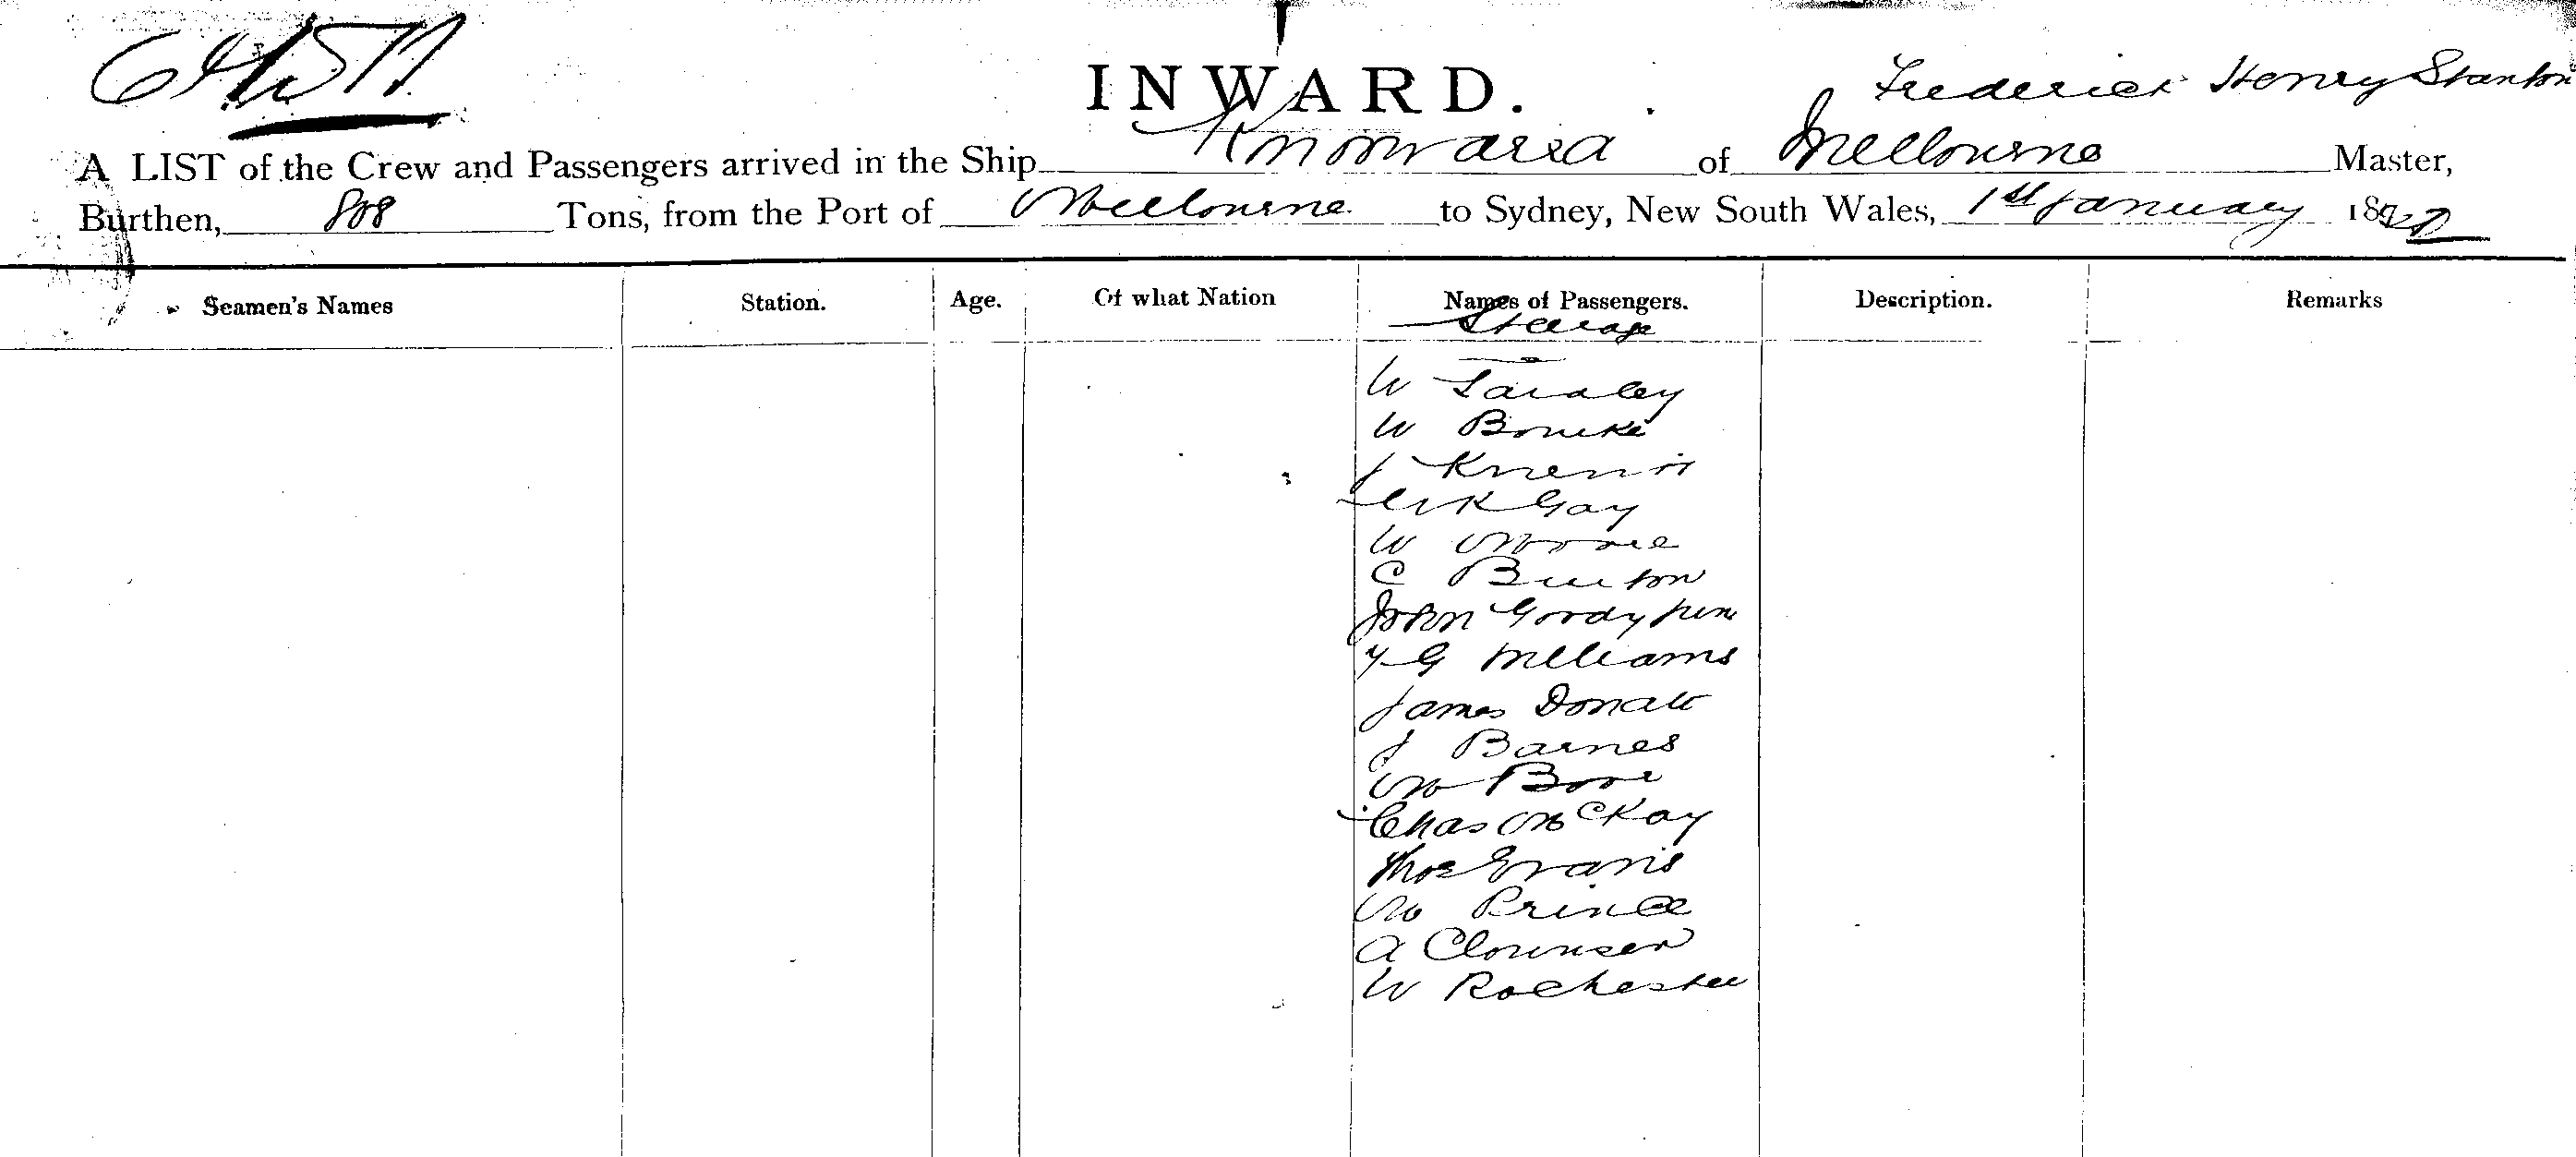 INWARD.
Frederick Henry Stanton
A LIST of the Crew and Passengers arrived in the Ship Konoowarra of Melbourne Master,
Burthen, 808 Tons, from the Port of Melbourne to Sydney, New South Wales, 1st January 18
Seamen's Names Station. Age. Of what Nation Names of Passengers. Description. Remarks
Steerage
W
W Bourke
J
Gay
W Moore
C Burton
John Goody Jun
G Williams
James Donall
J Barnes
M Boor
Chas McKay
Thos Evans
M Prince
A
W Rochester